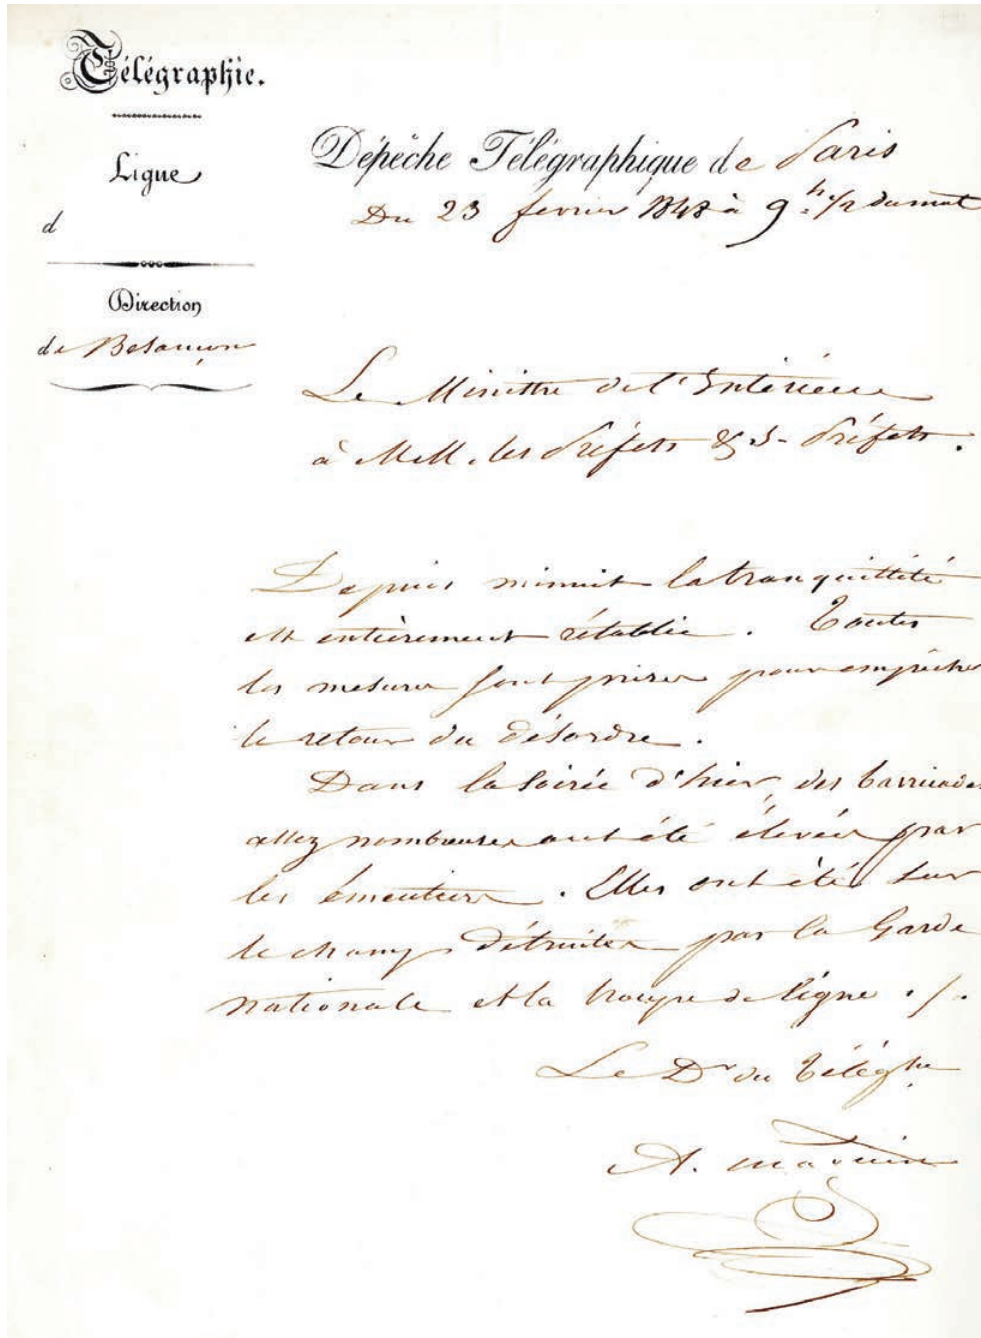 Télégraphie.
Ligne
d
Direction
de Besançon
Dépêche Télégraphique de Paris
Du 23 février 1848 à 9 h. 1/2 du mat
Le Ministre de l'Intérieur
à M.M. les Préfets & S-Préfets.
Depuis minuit la tranquillité
est entièrement rétablie. Toutes
les mesures sont prises pour empêcher
le retour du désordre.
Dans la soirée d'hier, des barricades
assez nombreuses ont été élevées par
les émeutiers. Elles ont été sur
le champ détruites par la Garde
nationale et la troupe de ligne ./.
Le Dr du Téléghe
A.